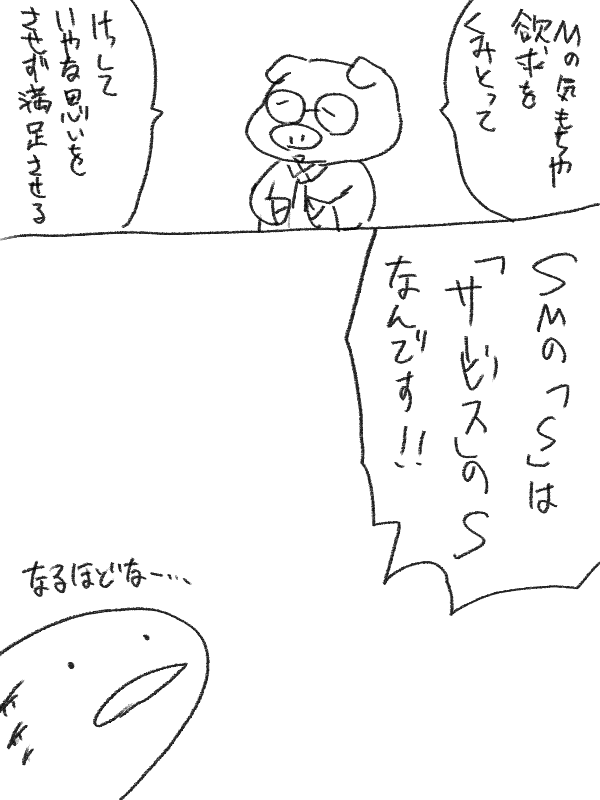 Mの気もちや
欲求を
くみとって
けっして
いやな思いを
させず満足させる
SMの「S」は
「サービス」のS
なんです!!
なるほどなー…